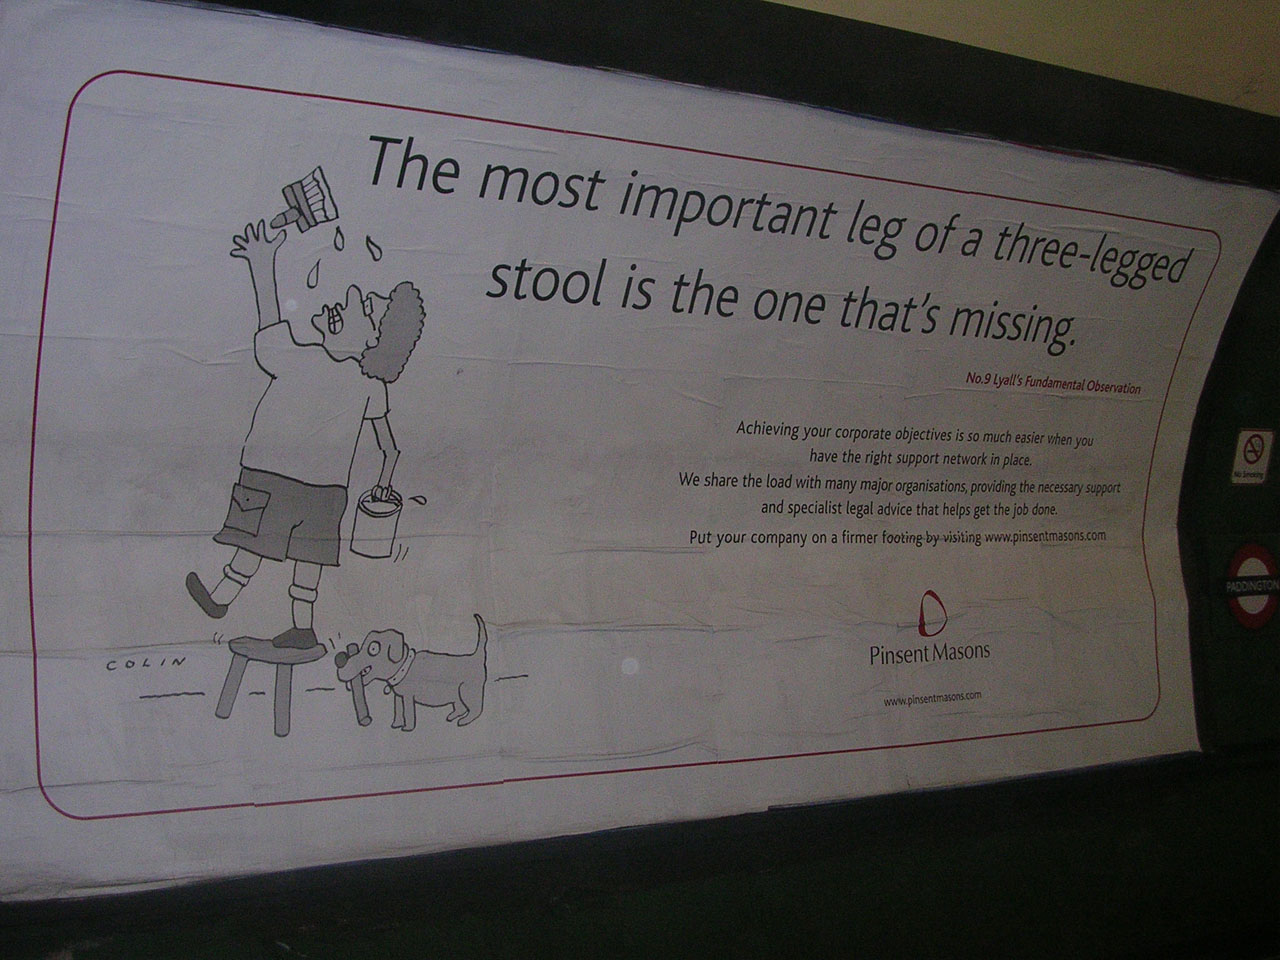 The most important leg of a three-legged
stool is the one that's missing.
No.9 Lyall's Fundamental Observation
Achieving your corporate objectives is so much easier when you
have the right support network in place.
We share the load with many major organisations, providing the necessary support
and specialist legal advice that helps get the job done.
Put your company on a firmer footing by visiting www.pinsentmasons.com
Pinsent Masons
www.pinsentmasons.com
COLIN
No Smoking
PADDINGTON